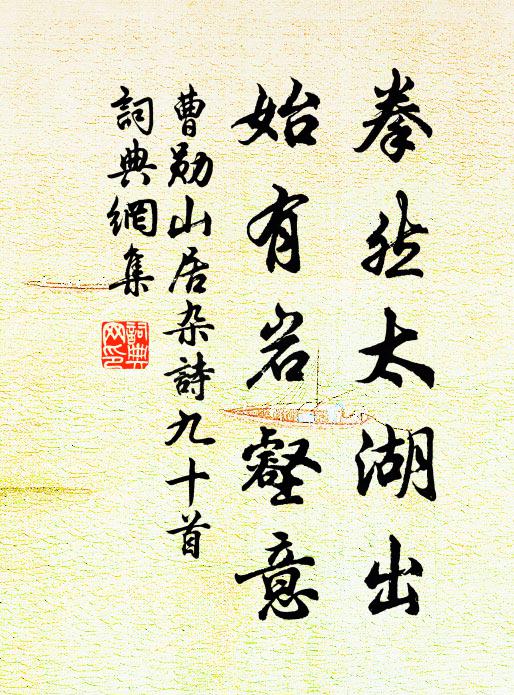 拳然太湖出
始有岩壑意
曹勋山居杂詩九十首
詞典網集
詞典
网印